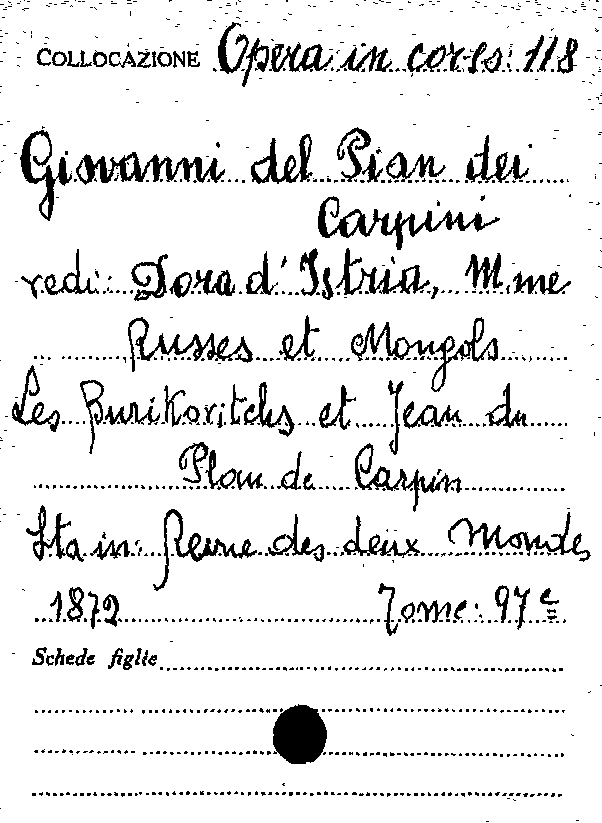 COLLOCAZIONE Opera in cors: 118
Giovanni del Pian dei
Carpini
vedi: Dora d'Istria, Mme
Russes et Mongols
Les Burikovitchs et Jean du
Plan de Carpin
Sta in: Revue des deux Mondes
1872 Tome: 97e
Schede figlie